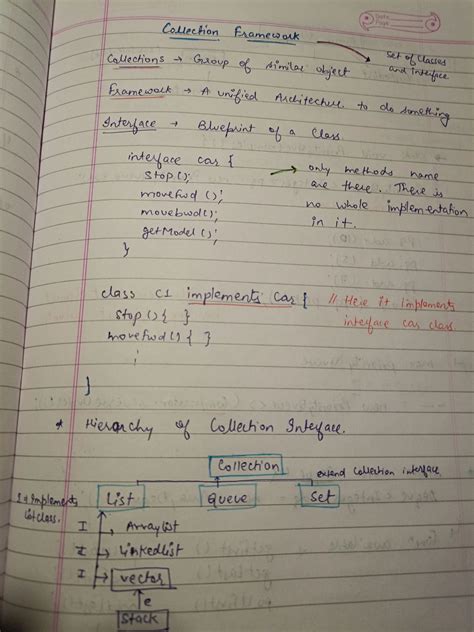 Date
Page
Collection Framework
Set of Classes
and interface
Collections → Group of similar object
Framework → A unified Architecture to do something
Interface → Blueprint of a Class.
interface car {
Stop();
movefwd();
movebwd();
getModel();
}
→ only methods name
are there. There is
no whole implementation
in it.
class C1 implements car {
// Here it implements
interface car class.
Stop() { }
movefwd() { }
:
}
* Hierarchy of Collection Interface.
Collection
extend collection interface
I → Implements
List class.
List
Queue
Set
I → Arraylist
I → Linkedlist
I → vector
e
Stack